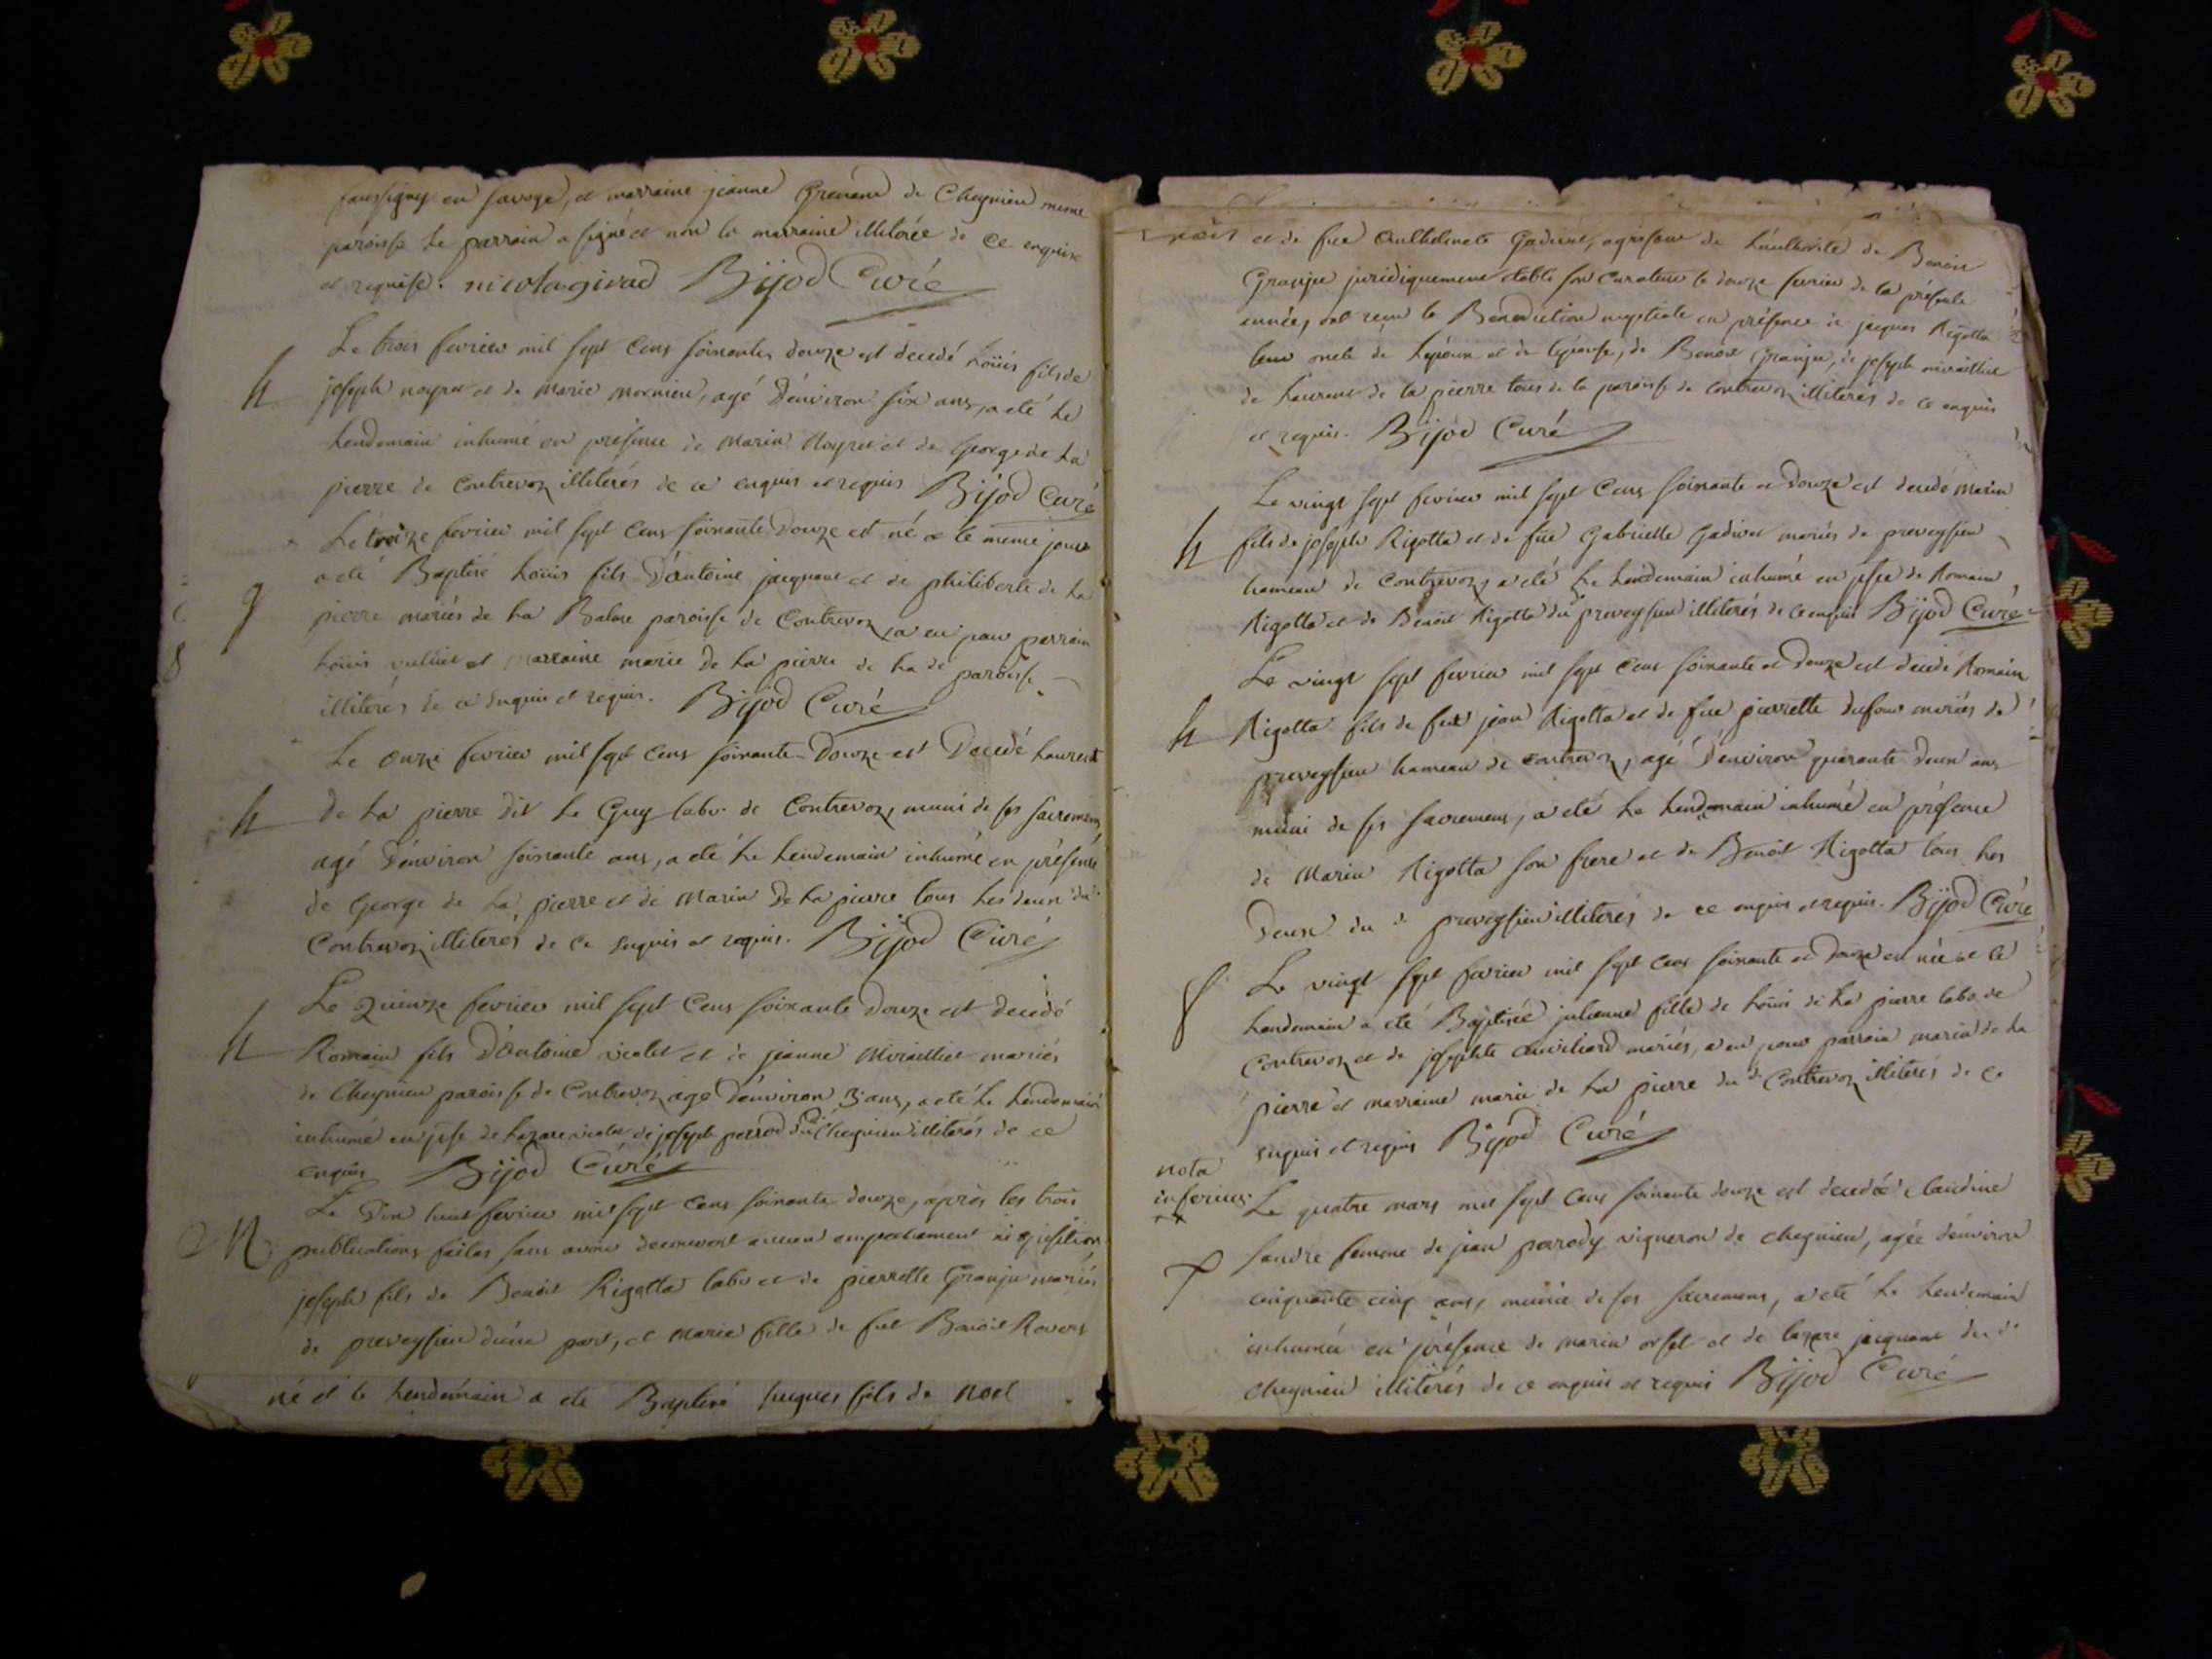 faussigny en savoye, et marraine jeanne Grenand de Chegnieu meme
paroisse le parrain a signé et non la marraine illiterée de ce enquise
et requise. nicola girad Bijod Curé
Le trois fevrier mil sept cens soixante douze est decedé Loüis fils de
h joseph noyret et de Marie mornieu, agé d'environ six ans, a eté le
lendemain inhumé en presence de Marin Noyret et de George de La
pierre de Contrevoz illiterés de ce enquis et requis Bijod Curé
Le treize fevrier mil sept cens soixante douze est né et le meme jour
a eté Baptisé Loüis fils d'antoine jacquand et de philiberte de La
pierre mariés de La Balme paroisse de Contrevoz, a eu pour parrain
Loüis vulliet et marraine marie de La pierre de La de paroisse
illiterés de ce Enquis et requis. Bijod Curé
Le onze fevrier mil sept cens soixante douze est Decedé Laurent
h De La pierre dit Le Guy labr. de Contrevoz, muni de ses sacremens,
agé d'environ soixante ans, a eté Le Lendemain inhumé en présence
de George de La pierre et de Marin De La pierre tous les deux du d.
Contrevoz illiterés de Ce Enquis et requis. Bijod Curé
Le Quinze fevrier mil sept Cens soixante douze est decedé
h Romain fils D'antoine violet et de jeanne Miraillet mariés
de Chegnieu paroisse de Contrevoz agé d'environ 3 ans, a eté Le Lendemain
inhumé en psce de Lazare violet de joseph perrod du d. Chegnieu illiterés de ce
enquis Bijod Curé
Le Dix huit fevrier mil sept Cens soixante douze, après les trois
M publications faites sans avoir decouvert aucun empechement ni oposition
joseph fils de Benoit Rigotta labr et de pierrette Granju mariés
de preveysieu d'une part, et Marie fille de feu Benoit Ravery
né et le lendemain a ete Baptisé hugues fils de Noel
et de feue Anthelmete Gadivet, agissant de L'authorité de Benoit
Granju juridiquement etabli son Curateur le douze fevrier de la présente
année, ont reçu la Bénédiction nuptiale en présence de jaques Rigotta
leur oncle de L'époux et de L'épouse, de Benoit Granju, de joseph miraillet
de Laurent de la pierre tous de la paroisse de Contrevoz illiterés de ce enquis
et requis. Bijod Curé
Le vingt sept fevrier mil sept Cens soixante et Douze est decedé Marin
h fils de joseph Rigotta et de füe Gabrielle Gadivet mariés de preveysieu
hameau de Contrevoz, a eté Le Lendemain inhumé en psce de Romain
Rigotta et de Benoit Rigotta du d. preveysieu illiterés de ce enquis Bijod Curé
Le vingt sept fevrier mil sept Cens soixante et Douze est decedé Romain
h Rigotta fils de feu jean Rigotta et de füe pierrette dufour mariés de
preveysieu hameau de contrevoz, agé D'environ quarante deux ans
muni de ses sacremens, a eté Le Lendemain inhumé en présence
de Marin Rigotta son frere et de Benoit Rigotta tous Les
Deux du d. preveysieu illiterés de ce enquis et requis. Bijod Curé
Le vingt sept fevrier mil sept cens soixante et douze est née et le
Lendemain a eté Baptisée julienne fille de Loüis de La pierre labr de
Contrevoz et de josephte Cuvilliard mariés, a eu pour parrain marin de La
pierre et marraine marie de La pierre du d. Contrevoz illiterés de Ce
Enquis et requis Bijod Curé
nota
inferius. Le quatre mars mil sept Cens soixante douze est decedée Claudine
sandre femme de jean parrody vigneron de chegnieu, agée d'environ
cinquante cinq ans, munie de ses sacremens, a eté Le Lendemain
inhumée en présence de Marin orset et de Lazare jacquand du d.
Chegnieu illiterés de ce enquis et requis Bijod Curé